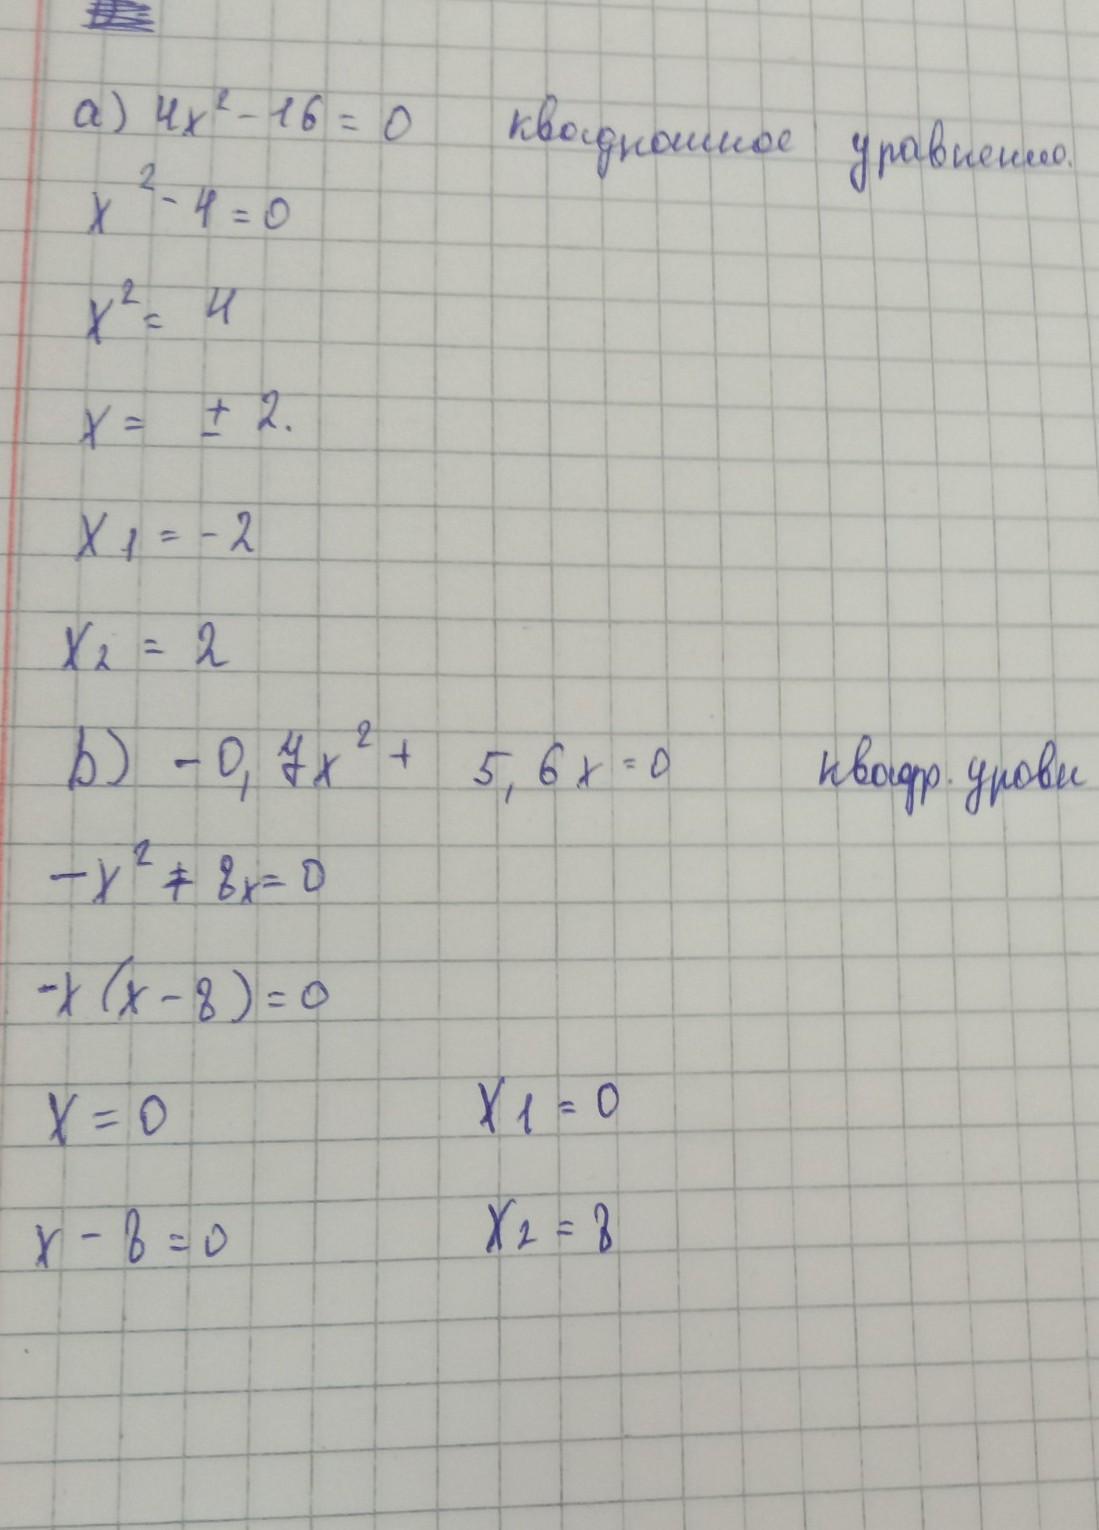 а) 4x² - 16 = 0 квадратное уравнение.
x² - 4 = 0
x² = 4
x = ± 2.
x₁ = -2
x₂ = 2
b) -0,7x² + 5,6x = 0 квадр. уравн
-x² + 8x = 0
-x (x - 8) = 0
x = 0 x₁ = 0
x - 8 = 0 x₂ = 8